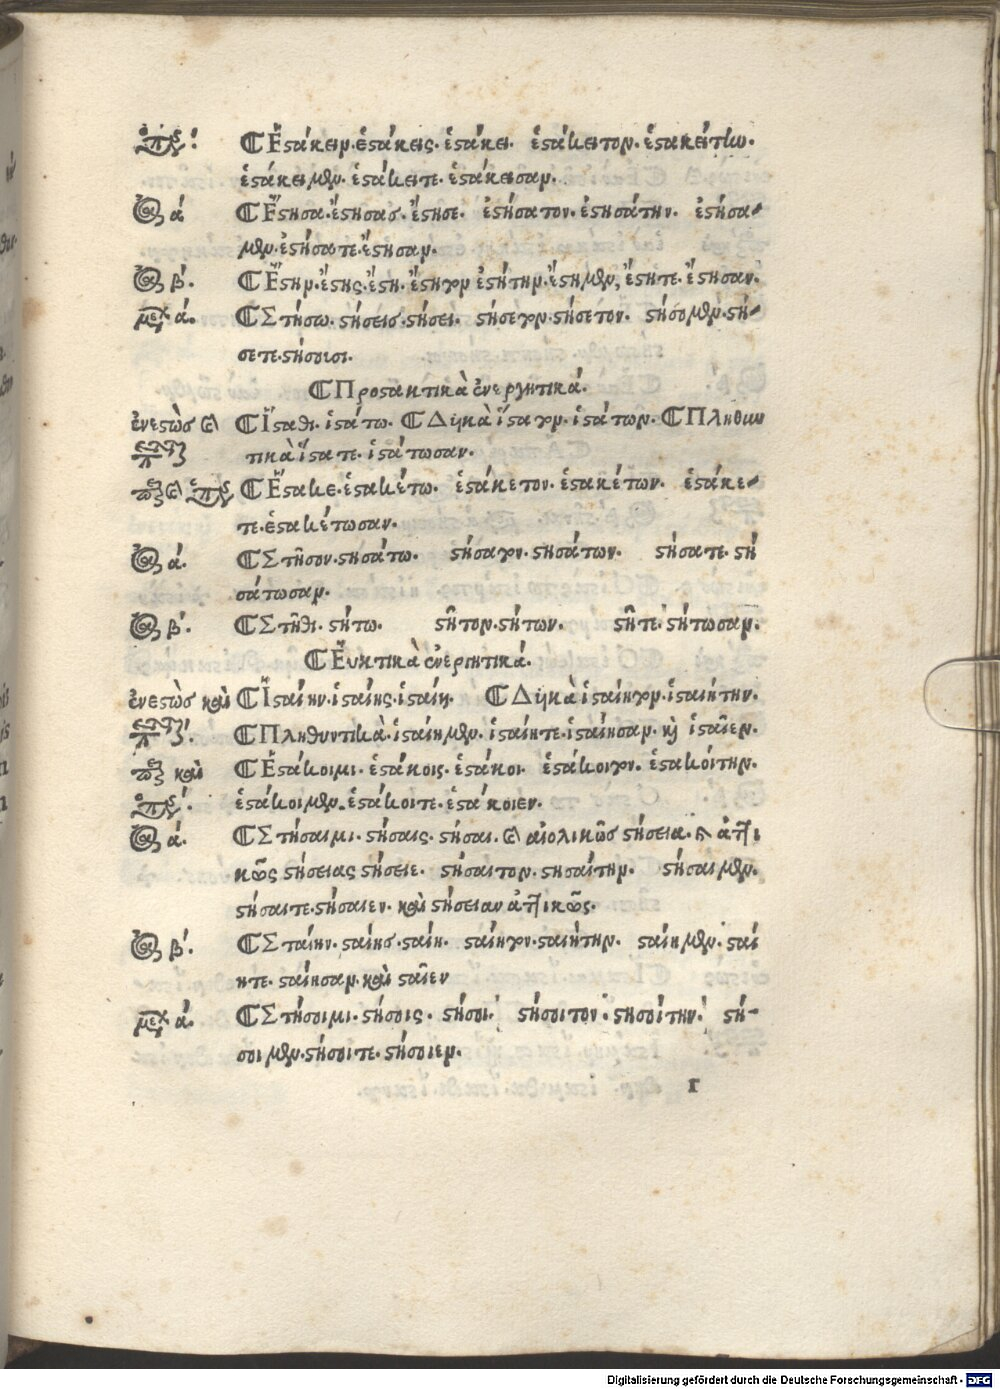 ὑπερ. Ἑστάκειν. ἑστάκεις. ἑστάκει. ἑστάκειτον. ἑστακείτην.
ἑστάκειμεν. ἑστάκειτε. ἑστάκεισαν.
ἀορ ά Ἔστησα. ἔστησας. ἔστησε. ἐστήσατον. ἐστησάτην. ἐστήσα-
μεν. ἐστήσατε. ἔστησαν.
ἀορ β΄. Ἔστην. ἔστης. ἔστη. ἔστητον ἐστήτην. ἔστημεν, ἔστητε. ἔστησαν.
μελ ά. Στήσω. στήσεις. στήσει. στήσετον. στήσετον. στήσομεν. στή-
σετε. στήσουσι.
Προστακτικὰ ἐνεργητικά.
ἐνεστὼς καὶ Ἵσταθι. ἱστάτω. Δυϊκὰ ἵστατον. ἱστάτων. Πληθυν
τικὰ ἵστατε. ἱστάτωσαν.
Ἕστακε. ἑστακέτω. ἑστάκετον. ἑστακέτων. ἑστάκε-
τε. ἑστακέτωσαν.
ἀορ ά. Στῆσον. στησάτω. στήσατον. στησάτων. στήσατε. στη
σάτωσαν.
ἀορ β΄. Στῆθι. στήτω. στῆτον. στήτων. στῆτε. στήτωσαν.
Εὐκτικὰ ἐνεργητικά.
ἐνεστὼς καὶ Ἱσταίην. ἱσταίης. ἱσταίη. Δυϊκὰ ἱσταίητον. ἱσταιήτην.
Πληθυντικὰ. ἱσταίημεν. ἱσταίητε. ἱσταίησαν. καὶ ἱσταῖεν.
καὶ Ἑστάκοιμι. ἑστάκοις. ἑστάκοι. ἑστάκοιτον. ἑστακοίτην.
ὑπερ. ἑστάκοιμεν. ἑστάκοιτε. ἑστάκοιεν.
ἀορ ά. Στήσαιμι. στήσαις. στήσαι. καὶ αἰολικῶς στήσεια. καὶ ἀττι
κῶς στήσειας στήσειε. στήσαιτον. στησαίτην. στήσαιμεν.
στήσαιτε. στήσαιεν. καὶ στήσειαν ἀττικῶς.
ἀορ β΄. Σταίην. σταίης. σταίη. σταίητον. σταιήτην. σταίημεν. σταί
ητε. σταίησαν. καὶ σταῖεν
μελ ά. Στήσοιμι. στήσοις. στήσοι. στήσοιτον. στησοίτην. στή-
σοιμεν. στήσοιτε. στήσοιεν.
r
Digitalisierung gefördert durch die Deutsche Forschungsgemeinschaft - DFG